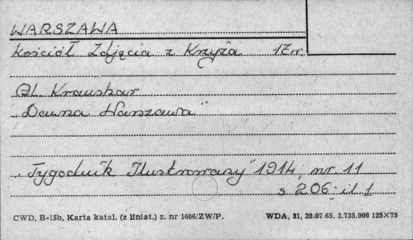 WARSZAWA
Kościół Zdjęcia z Krzyża 17 w.
Al. Kraushar
„Dawna Warszawa"
„Tygodnik Ilustrowany" 1914, nr. 11
s 206: il. 1
CWD, B-15b, Karta katal. (z liniat.) z. nr 1606/ZW/P. WDA, 31, 20.07.65. 2.735.000 125×75